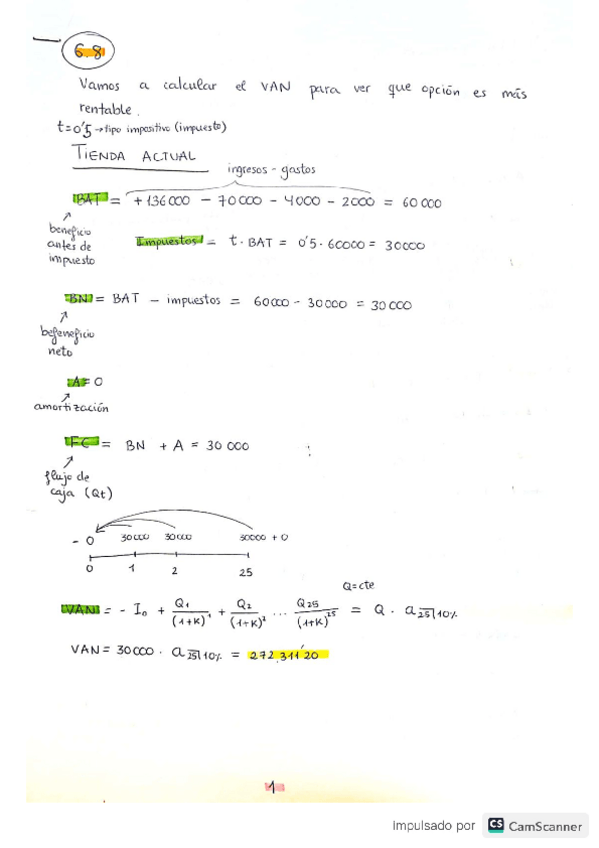 6.8
Vamos a calcular el VAN para ver que opción es más
rentable.
t=0'5 → tipo impositivo (impuesto)
TIENDA ACTUAL
ingresos - gastos
BAT = +136000 - 70000 - 4000 - 2000 = 60000
beneficio
antes de
impuesto
Impuestos = t · BAT = 0'5 · 60000 = 30000
BN = BAT - impuestos = 60000 - 30000 = 30000
befeneficio
neto
A = 0
amortización
FC = BN + A = 30000
flujo de
caja (Qt)
- 0 30000 30000 30000 + 0
0 1 2 25
Q=cte
VAN = - I₀ + Q1/(1+K)^1 + Q2/(1+K)^2 ... Q25/(1+K)^25 = Q · a25|10%
VAN = 30000 · a25|10% = 272.311'20
1
Impulsado por CS CamScanner